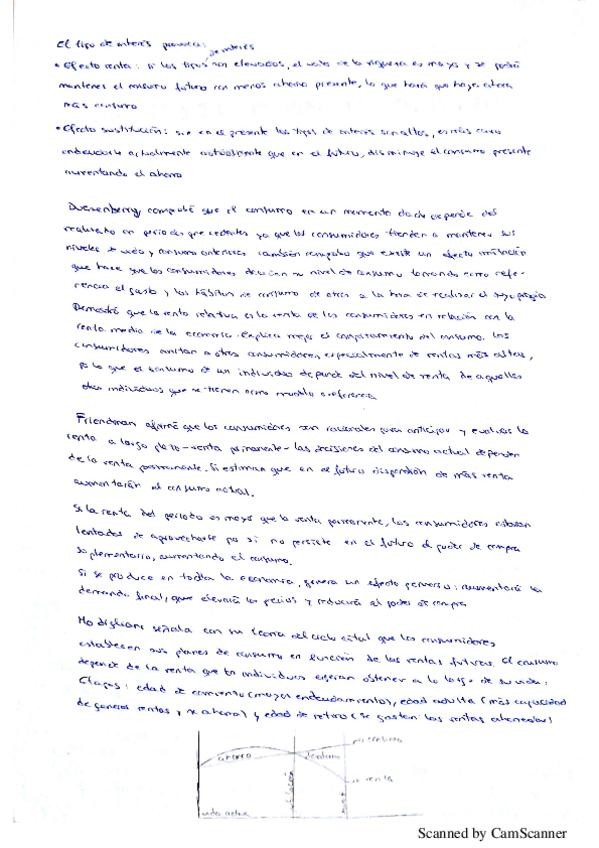 El tipo de interés provoca:
de interés
• Efecto renta: si los tipos son elevados, el valor de la riqueza es mayor y se podrá
mantener el consumo futuro con menos ahorro presente, lo que hará que haya ahora
más consumo
• Efecto sustitución: si en el presente los tipos de interés son altos, es más caro
endeudarse actualmente que en el futuro, disminuye el consumo presente
aumentando el ahorro
Duesenberry comprobó que el consumo en un momento dado depende del
realizado en periodos precedentes ya que los consumidores tienden a mantener sus
niveles de vida y consumo anteriores. También comprobó que existe un efecto imitación
que hace que los consumidores decidan su nivel de consumo tomando como refe-
rencia el gasto y los hábitos de consumo de otros a la hora de realizar el suyo propio
Demostró que la renta relativa es la renta de los consumidores en relación con la
renta media de la economía. Explica mejor el comportamiento del consumo. Los
consumidores imitan a otros consumidores, especialmente de rentas más altas,
por lo que el consumo de un individuo depende del nivel de renta de aquellos
otros individuos que se tienen como modelo o referencia
Friendman afirmó que los consumidores son racionales para anticipar y evaluar la
renta a largo plazo -renta permanente- las decisiones del consumo actual dependen
de la renta permanente. Si estiman que en el futuro dispondrán de más renta
aumentarán el consumo actual.
Si la renta del periodo es mayor que la renta permanente, los consumidores estarán
tentados de aprovecharse por si no persiste en el futuro el poder de compra
suplementario, aumentando el consumo.
Si se produce en toda la economía, genera un efecto perverso: aumentará la
demanda final, que elevará los precios y reducirá el poder de compra
Modigliani señala con su teoría del ciclo vital que los consumidores
establecen sus planes de consumo en función de las rentas futuras. El consumo
depende de la renta que los individuos esperan obtener a lo largo de su vida:
Etapas: edad de crecimiento (mayor endeudamiento), edad adulta (más capacidad
de generar rentas y se ahorra) y edad de retiro (se gastan las rentas obtenidas)
consumo
ahorro
renta
vida activa
Scanned by CamScanner